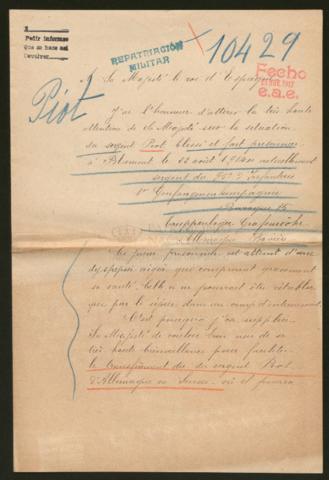 Pedir informes
REPATRIACIÓN
MILITAR
10429
Fecho
e.a.e.
Piot
A Sa Majesté le roi d'Espagne
J'ai l'honneur d'attirer la très haute
attention de Sa Majesté sur la situation
du sergent Piot blessé et fait prisonnier
à Blamont le 22 août 1914 actuellement
sergent du
Baraque
Allemagne Bavière
Ce jeune prisonnier est atteint d'une
dyspepsie aigüe qui compromet gravement
sa santé. Celle-ci ne pourrait être rétablie
que par le séjour dans un camp d'internement.
C'est pourquoi j'ai supplier
Sa Majesté de vouloir bien user de sa
très haute bienveillance pour faciliter
le transfèrement du dit sergent Piot
d'Allemagne en Suisse où il pourra